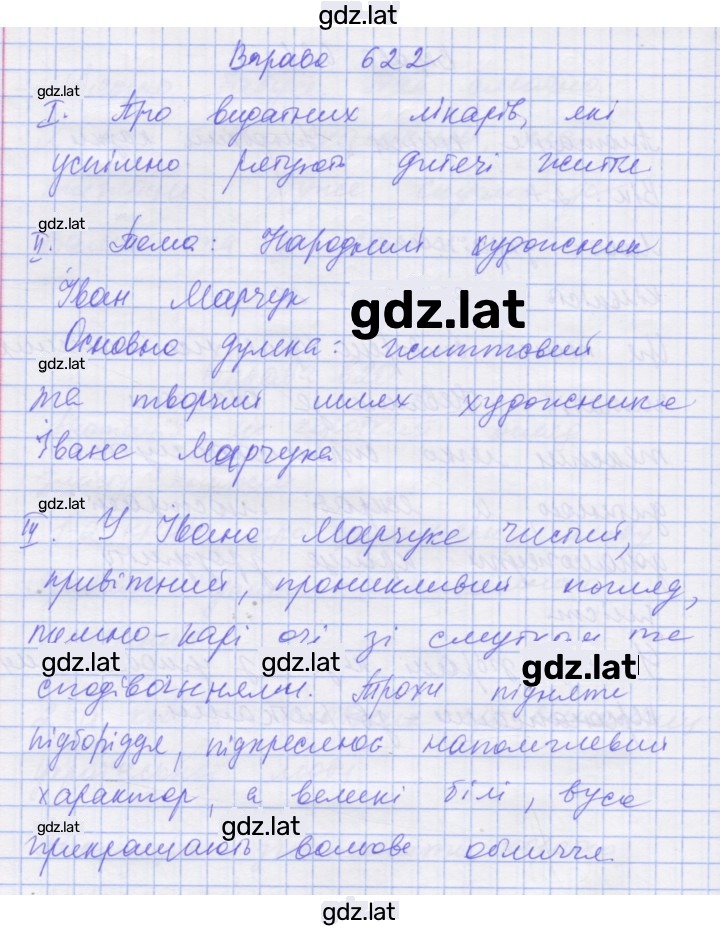 gdz.lat
Вправа 622
gdz.lat
І. Про видатних лікарів, які
успішно рятують дитячі життя
gdz.lat
ІІ. Тема: Народний художник
Іван Марчук
gdz.lat
Основна думка: життєвий
gdz.lat
та творчий шлях художника
Івана Марчука
gdz.lat
IV. У Івана Марчука чистий,
привітний, проникливий погляд,
темно-карі очі зі смутком та
gdz.lat gdz.lat gdz.lat
сподіваннями. Трохи підняте
підборіддя, підкреслює наполегливий
характер, а великі білі, вуса
gdz.lat gdz.lat
прикрашають вольове обличчя.
gdz.lat